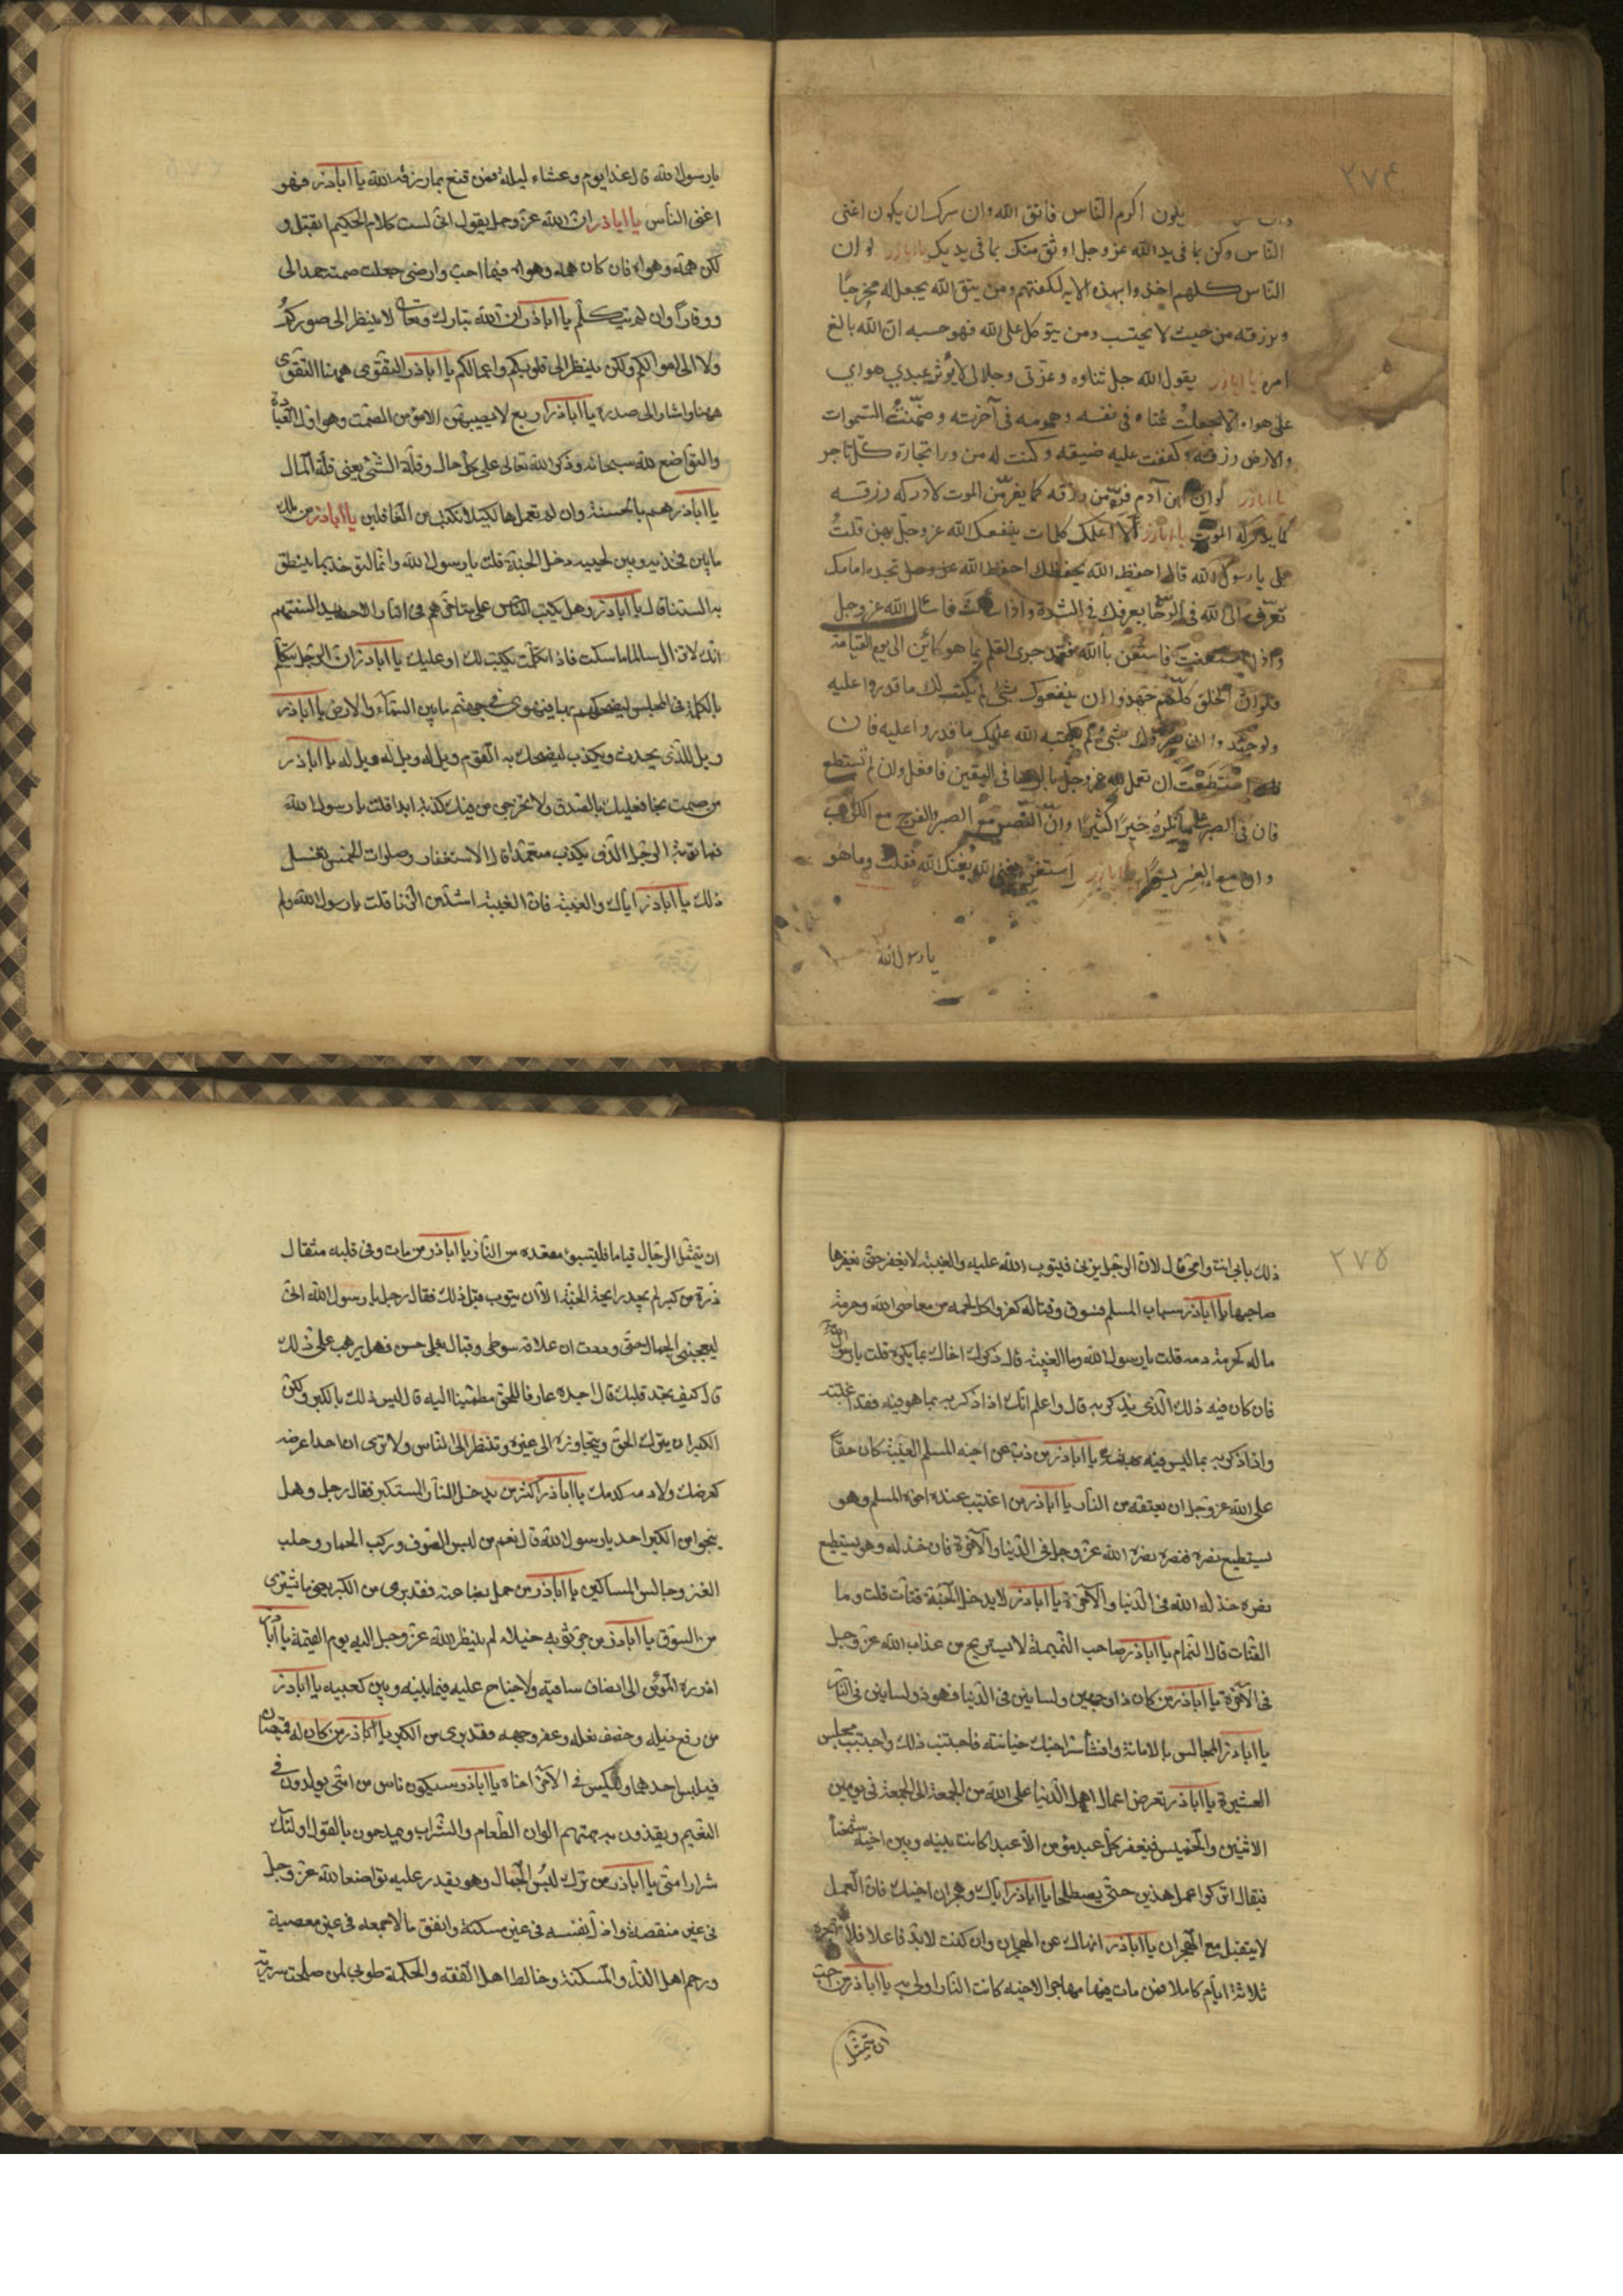 ٢٧۴
يكون اكرم الناس فاتق الله وان سرك ان يكون اغنى
الناس وكن بما فى يد الله عز وجل اوثق منك بما فى يديك يا اباذر لو ان
الناس كلهم اخذوا بهذه الايه لكفتهم ومن يتق الله يجعل له مخرجًا
ويرزقه من حيث لا يحتسب ومن يتوكل على الله فهو حسبه ان الله بالغ
امره يا اباذر يقول الله جل ثناوه وعزتى وجلالى لا يؤثر عبدي هواي
على هواه الا جعلت غناه فى نفسه وهمومه فى آخرته وضمّنتُ السموات
والارض رزقه وكففت عليه ضيقه وكنت له من ورا تجارة كل تاجر
يا اباذر لو ان ابن آدم فرّ من رزقه كما يفر من الموت لادركه رزقه
كما يدركه الموت يا اباذر ألا اعلمك كلمات ينفعك الله عز وجل بهن قلتُ
بلى يا رسول الله قال احفظ الله يحفظك احفظ الله عز وجل تجده امامك
تعرّف الى الله فى الرّخا يعرفك فى الشدة واذا سألت فاسال الله عز وجل
واذا استعنت فاستعن بالله فقد جرى القلم بما هو كاين الى يوم القيامة
فلو ان الخلق كلهم جهدوا ان ينفعوك بشئ لم يكتب لك ما قدروا عليه
ولو جهدوا ان يضروك بشئ لم يكتبه الله عليك ما قدروا عليه فان
استطعت ان تعمل لله عز وجل بالرضا فى اليقين فافعل وان لم تستطع
فان فى الصبر على ما تكره خيرًا كثيرًا وانّ النصر مع الصبر والفرج مع الكرب
وان مع العسر يسرًا يا اباذر استغن بغنى الله يغنك الله فقلت وما هو
يا رسول الله
يا رسول الله قال غدا يوم وعشاء ليلة فمن قنع بما رزقه الله يا اباذر فهو
اغنى الناس يا اباذر ان الله عز وجل يقول انى لست كلام الحكيم اتقبل و
لكن همه وهواه فان كان همه وهواه فيما احب وارضى جعلت صمته حمدا لى
ووقارًا وان لم يتكلم يا اباذر ان الله تبارك وتعالى لا ينظر الى صوركم
ولا الى اموالكم ولكن ينظر الى قلوبكم واعمالكم يا اباذر التقوى ههنا التقوى
ههنا واشار الى صدره يا اباذر اربع لا يصيبهن الا مؤمن الصمت وهو اول العبادة
والتواضع لله سبحانه وذكر الله تعالى على كل حال وقلة الشئ يعنى قلة المال
يا اباذر هم بالحسنة وان لم تعملها لكيلا تكتب من الغافلين يا اباذر من ملك
ما بين فخذيه وبين لحييه دخل الجنة قلت يا رسول الله وانا لنؤخذ بما ينطق
به السنتنا قال يا اباذر وهل يكب الناس على مناخرهم فى النار الا حصايد السنتهم
انك لا تزال سالما ما سكت فاذا تكلمت يكتب لك او عليك يا اباذر ان الرجل يتكلم
بالكلمة فى المجلس ليضحكهم بها فيهوى فى جهنم ما بين السماء والارض يا اباذر
ويل للذى يحدث ويكذب ليضحك به القوم ويل له ويل له ويل له يا اباذر
من صمت نجا فعليك بالصدق ولا تخرجن من فيك كذبة ابدا قلت يا رسول الله
فما توبة الرجل الذى يكذب متعمدا قال الاستغفار وصلوات الخمس تغسل
ذلك يا اباذر اياك والغيبة فان الغيبة اشد من الزنا قلت يا رسول الله ولم
٢٧٥
ذلك بابى انت وامى قال لان الرجل يزنى فيتوب الله عليه والغيبة لا يغفر حتى يغفرها
صاحبها يا اباذر سباب المسلم فسوق وقتاله كفر واكل لحمه من معاصى الله وحرمة
ما له كحرمة دمه قلت يا رسول الله وما الغيبة قال ذكرك اخاك بما يكره قلت يا رسول الله
فان كان فيه ذلك الذى يذكر به قال واعلم انك اذا ذكرته بما هو فيه فقد اغتبته
واذا ذكرته بما ليس فيه بهته يا اباذر من ذب عن اخيه المسلم الغيبة كان حقًا
على الله عز وجل ان يعتقه من النار يا اباذر من اغتيب عنده اخوه المسلم وهو
يستطيع نصره فنصره نصره الله عز وجل فى الدنيا والآخرة فان خذله وهو يستطيع
نصره خذله الله فى الدنيا والآخرة يا اباذر لا يدخل الجنة قتات قلت وما
القتات قال النمام يا اباذر صاحب النميمة لا يستريح من عذاب الله عز وجل
فى الآخرة يا اباذر من كان ذا وجهين ولسانين فى الدنيا فهو ذو لسانين فى النار
يا اباذر المجالس بالامانة وافشاء سر اخيك خيانته فاجتنب ذلك واجتنب مجلس
العشيرة يا اباذر تعرض اعمال اهل الدنيا على الله من الجمعة الى الجمعة فى يومين
الاثنين والخميس فيغفر لكل عبد مؤمن الا عبدا كانت بينه وبين اخيه شحناء
فيقال اتركوا عمل هذين حتى يصطلحا يا اباذر اياك وهجران اخيك فان العمل
لا يتقبل مع الهجران يا اباذر انهاك عن الهجران وان كنت لابد فاعلا فلا تهجره
ثلاثة ايام كاملا فمن مات فيها مهاجرا لاخيه كانت النار اولى به يا اباذر من احب
ان يتمثل
ان يتمثل الرجال قياما فليتبوء مقعده من النار يا اباذر من مات وفى قلبه مثقال
ذرة من كبر لم يجد رايحة الجنة الا ان يتوب قبل ذلك فقال رجل يا رسول الله انى
ليعجبنى الجمال حتى وددت ان علاقة سوطى وقبال نعلى حسن فهل يرهب على ذلك
قال كيف تجد قلبك قال اجده عارفا للحق مطمئنا اليه قال ليس ذلك بالكبر ولكن
الكبر ان يترك الحق ويتجاوزه الى غيره وتنظر الى الناس ولا ترى ان احدا عرضه
كعرضك ولا دمه كدمك يا اباذر اكثر من يدخل النار المستكبر فقال رجل وهل
ينجوا من الكبر احد يا رسول الله قال نعم من لبس الصوف وركب الحمار وحلب
العنز وجالس المساكين يا اباذر من حمل بضاعته فقد برى من الكبر يعنى ما يشترى
من السوق يا اباذر من جر ثوبه خيلاء لم ينظر الله عز وجل اليه يوم القيمة يا اباذر
ازرة المؤمن الى انصاف ساقيه ولا جناح عليه فيما بينه وبين كعبيه يا اباذر
من رفع ذيله وخصف نعله وعفر وجهه فقد برى من الكبر يا اباذر من كان له قميصان
فيلبس احدهما وليكس فى الآخر اخاه يا اباذر سيكون ناس من امتى يولدون فى
النعيم ويغذون به همتهم الوان الطعام والشراب ويمدحون بالقول اولئك
شرار امتى يا اباذر من ترك لبس الجمال وهو يقدر عليه تواضعا لله عز وجل
فى غير منقصة واذل نفسه فى غير مسكنة وانفق مالا جمعه فى غير معصية
ورحم اهل الذل والمسكنة وخالط اهل الفقه والحكمة طوبى لمن صلحت سريرته